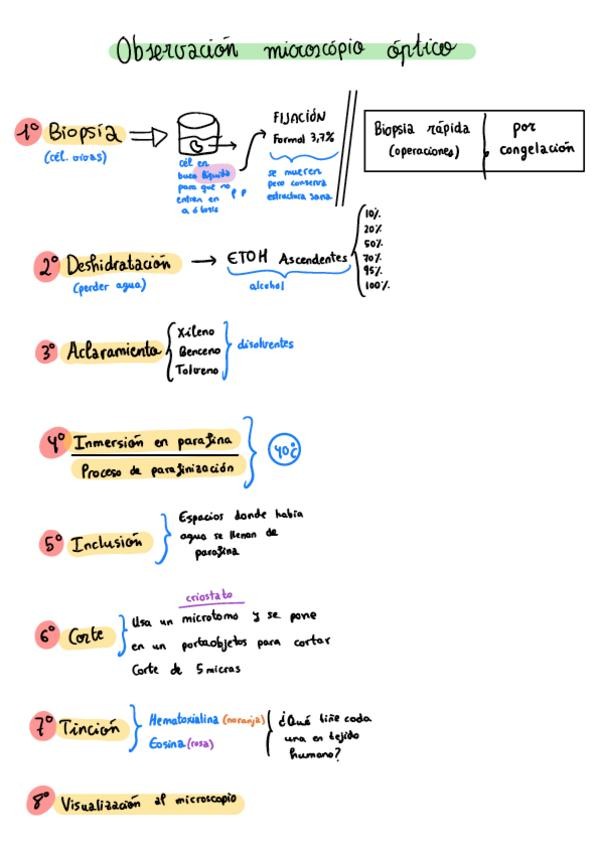 Observación microscópio óptico
1º Biopsía
(cél. vivas)
cél en
buen líquido
para que no
entren en
FIJACIÓN
Formol 3,7%
se mueren
pero conserva
estructura sana
Biopsia rápida
(operaciones)
por
congelación
2º Deshidratación
(perder agua)
ETOH Ascendentes
alcohol
10%
20%
50%
70%
95%
100%
3º Aclaramiento
Xileno
Benceno
Tolueno
disolventes
4º Inmersión en parafina
Proceso de parafinización
40ºc
5º Inclusión
Espacios donde había
agua se llenan de
parafina
6º Corte
criostato
Usa un microtomo y se pone
en un portaobjetos para cortar
Corte de 5 micras
7º Tinción
Hematoxialina (naranja)
Eosina (rosa)
¿Qué tiñe cada
una en tejido
humano?
8º Visualización al microscopio